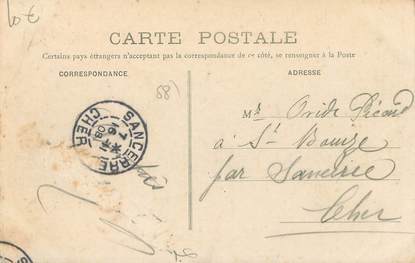 10€
CARTE POSTALE
Certains pays étrangers n'acceptant pas la correspondance de ce côté, se renseigner à la Poste
CORRESPONDANCE
ADRESSE
88)
SANCERRE
CHER
Mr Ovide
à St Bouize
par Sancerre
Cher